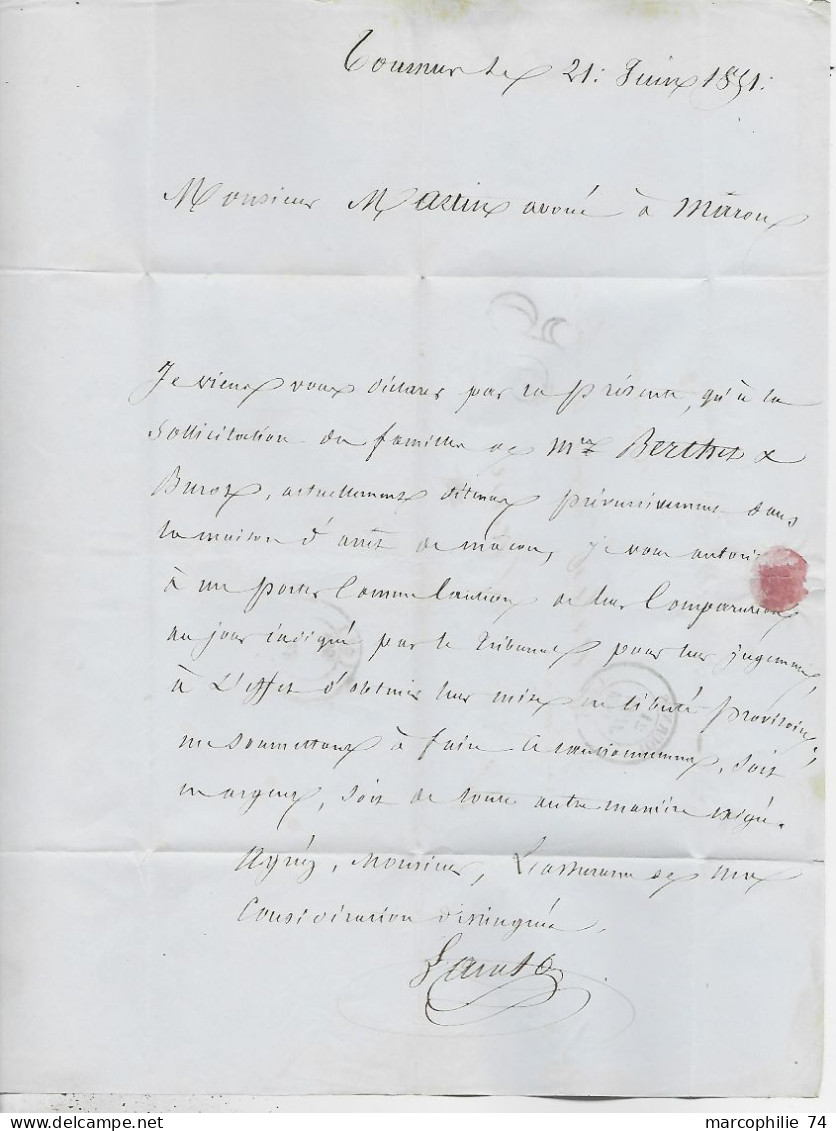 Tournus le 21: Juin 1851:
Monsieur Martin avoué à Mâcon
Je viens vous déclarer par la présente, qu'à la
Sollicitation des familles de Mrs Berthet &
Buroz, actuellement détenus préventivement dans
la maison d'arrêt de mâcon, je vous autorise
à me porter Comme Caution de leur Comparution
au jour indiqué par le Tribunal pour leur jugement,
à L'effet d'obtenir leur mise en liberté provisoire,
me soumettant à faire Ce cautionnement, soit
en argent, soit de toute autre manière exigée.
Agréez, Monsieur, L'assurance de ma
Considération distinguée,
marcophilie 74